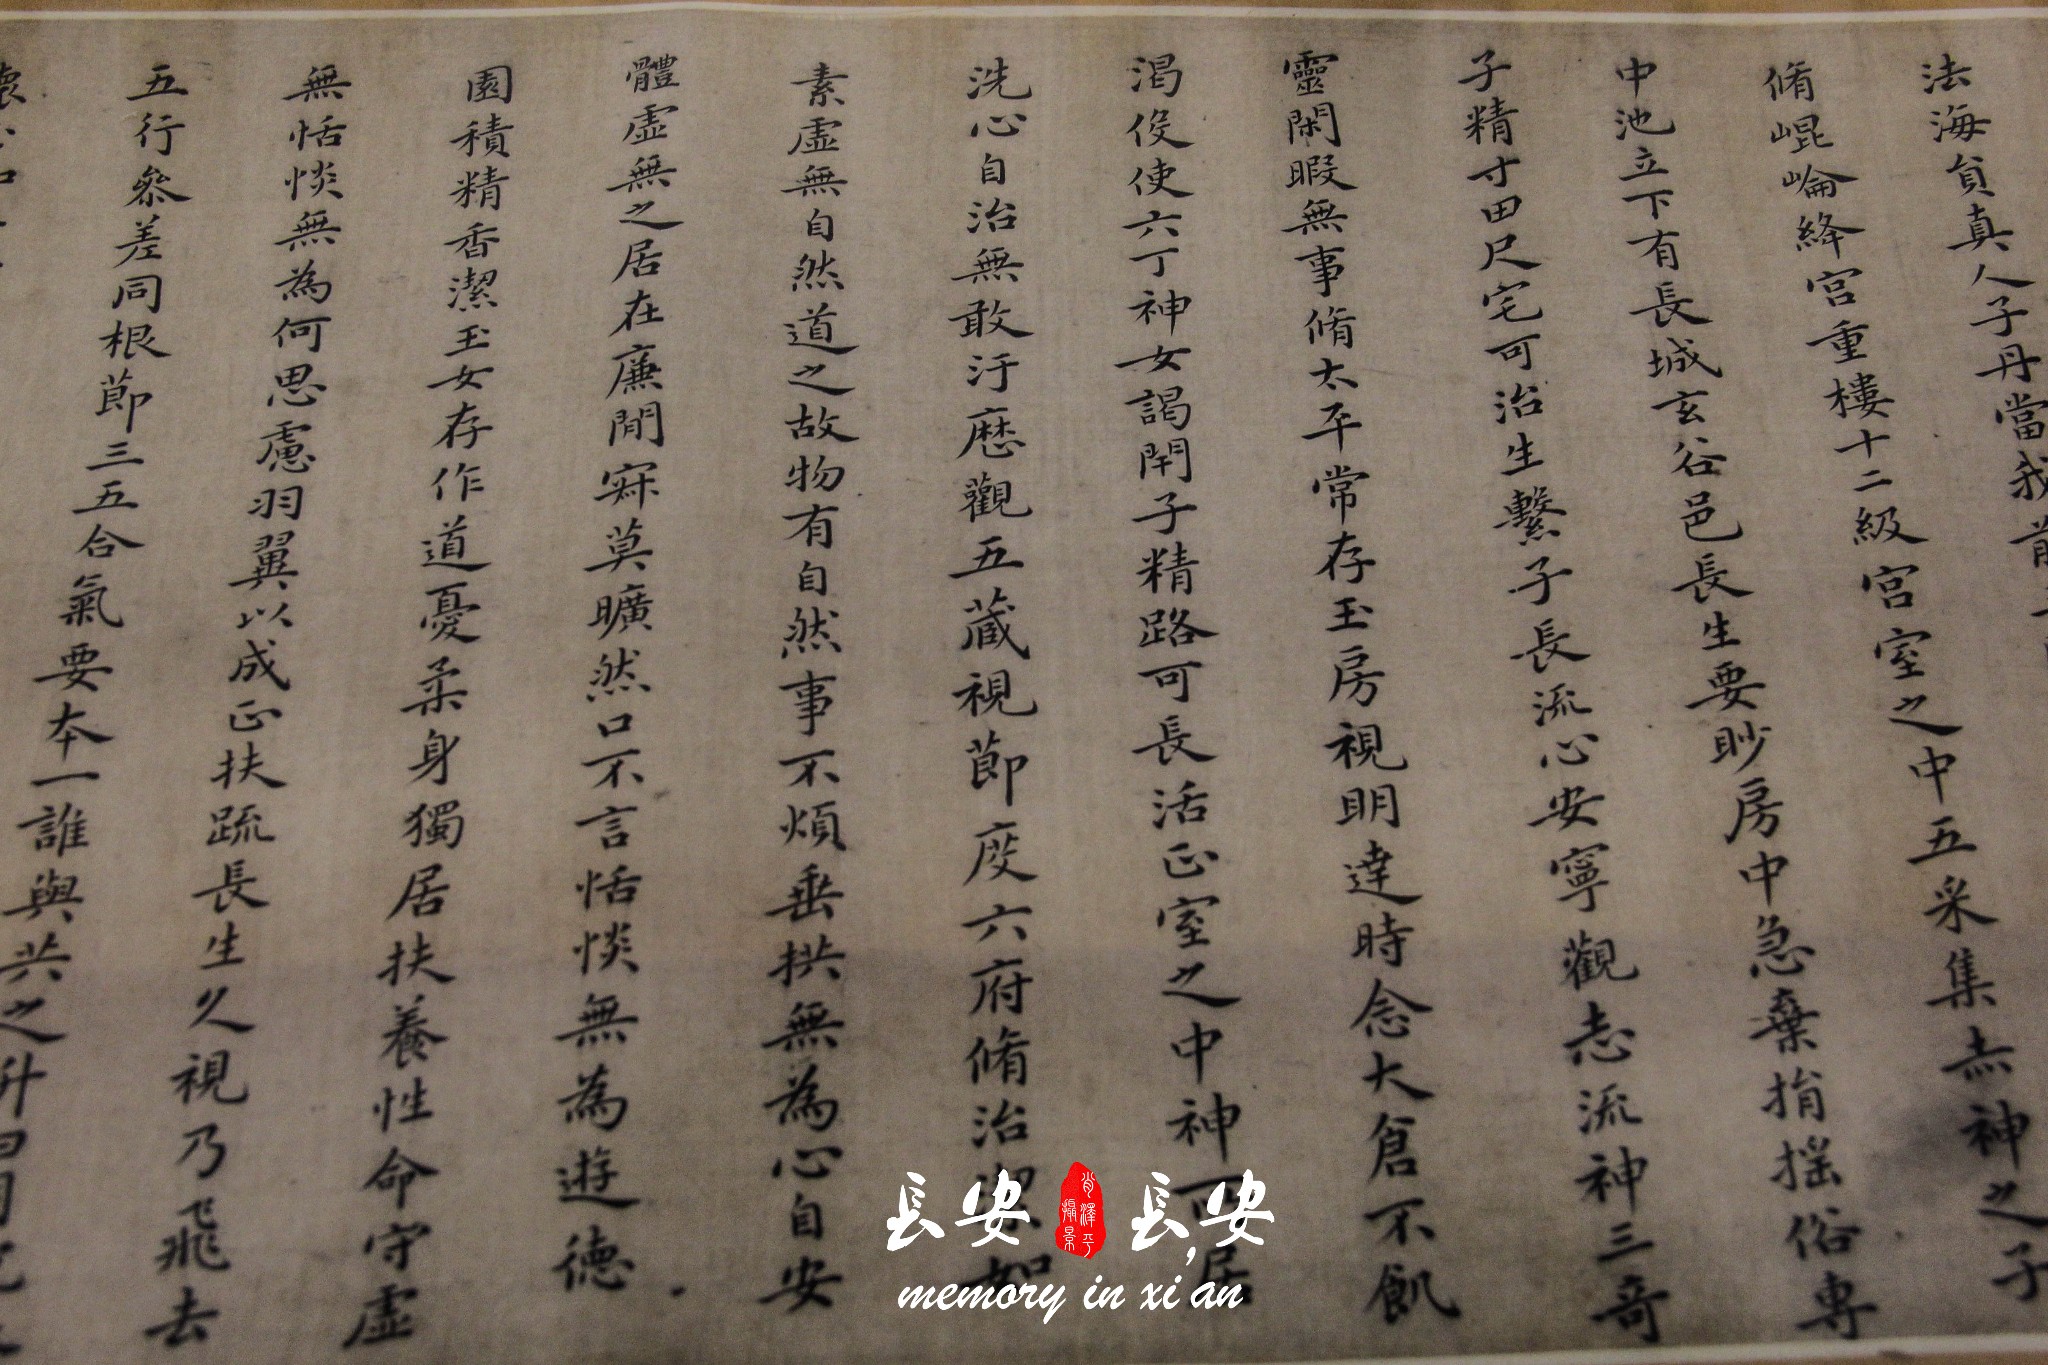 法海負真人子丹當我前
脩崐崘絳宮重樓十二級宮室之中五采集赤神之子
中池立下有長城玄谷邑長生要眇房中急棄捐搖俗專
子精寸田尺宅可治生繫子長流心安寧觀志流神三奇
靈閑暇無事脩太平常存玉房視明達時念大倉不飢
渴役使六丁神女謁閇子精路可長活正室之中神所居
洗心自治無敢汙歷觀五藏視節度六府脩治潔如
素虛無自然道之故物有自然事不煩垂拱無為心自安
體虛無之居在廉閒寂莫曠然口不言恬惔無為遊德
園積精香潔玉女存作道憂柔身獨居扶養性命守虛
無恬惔無為何思慮羽翼以成正扶疏長生久視乃飛去
五行參差同根節三五合氣要本一誰與共之升日月
長安長安
肖澤平攝影
memory in xi'an